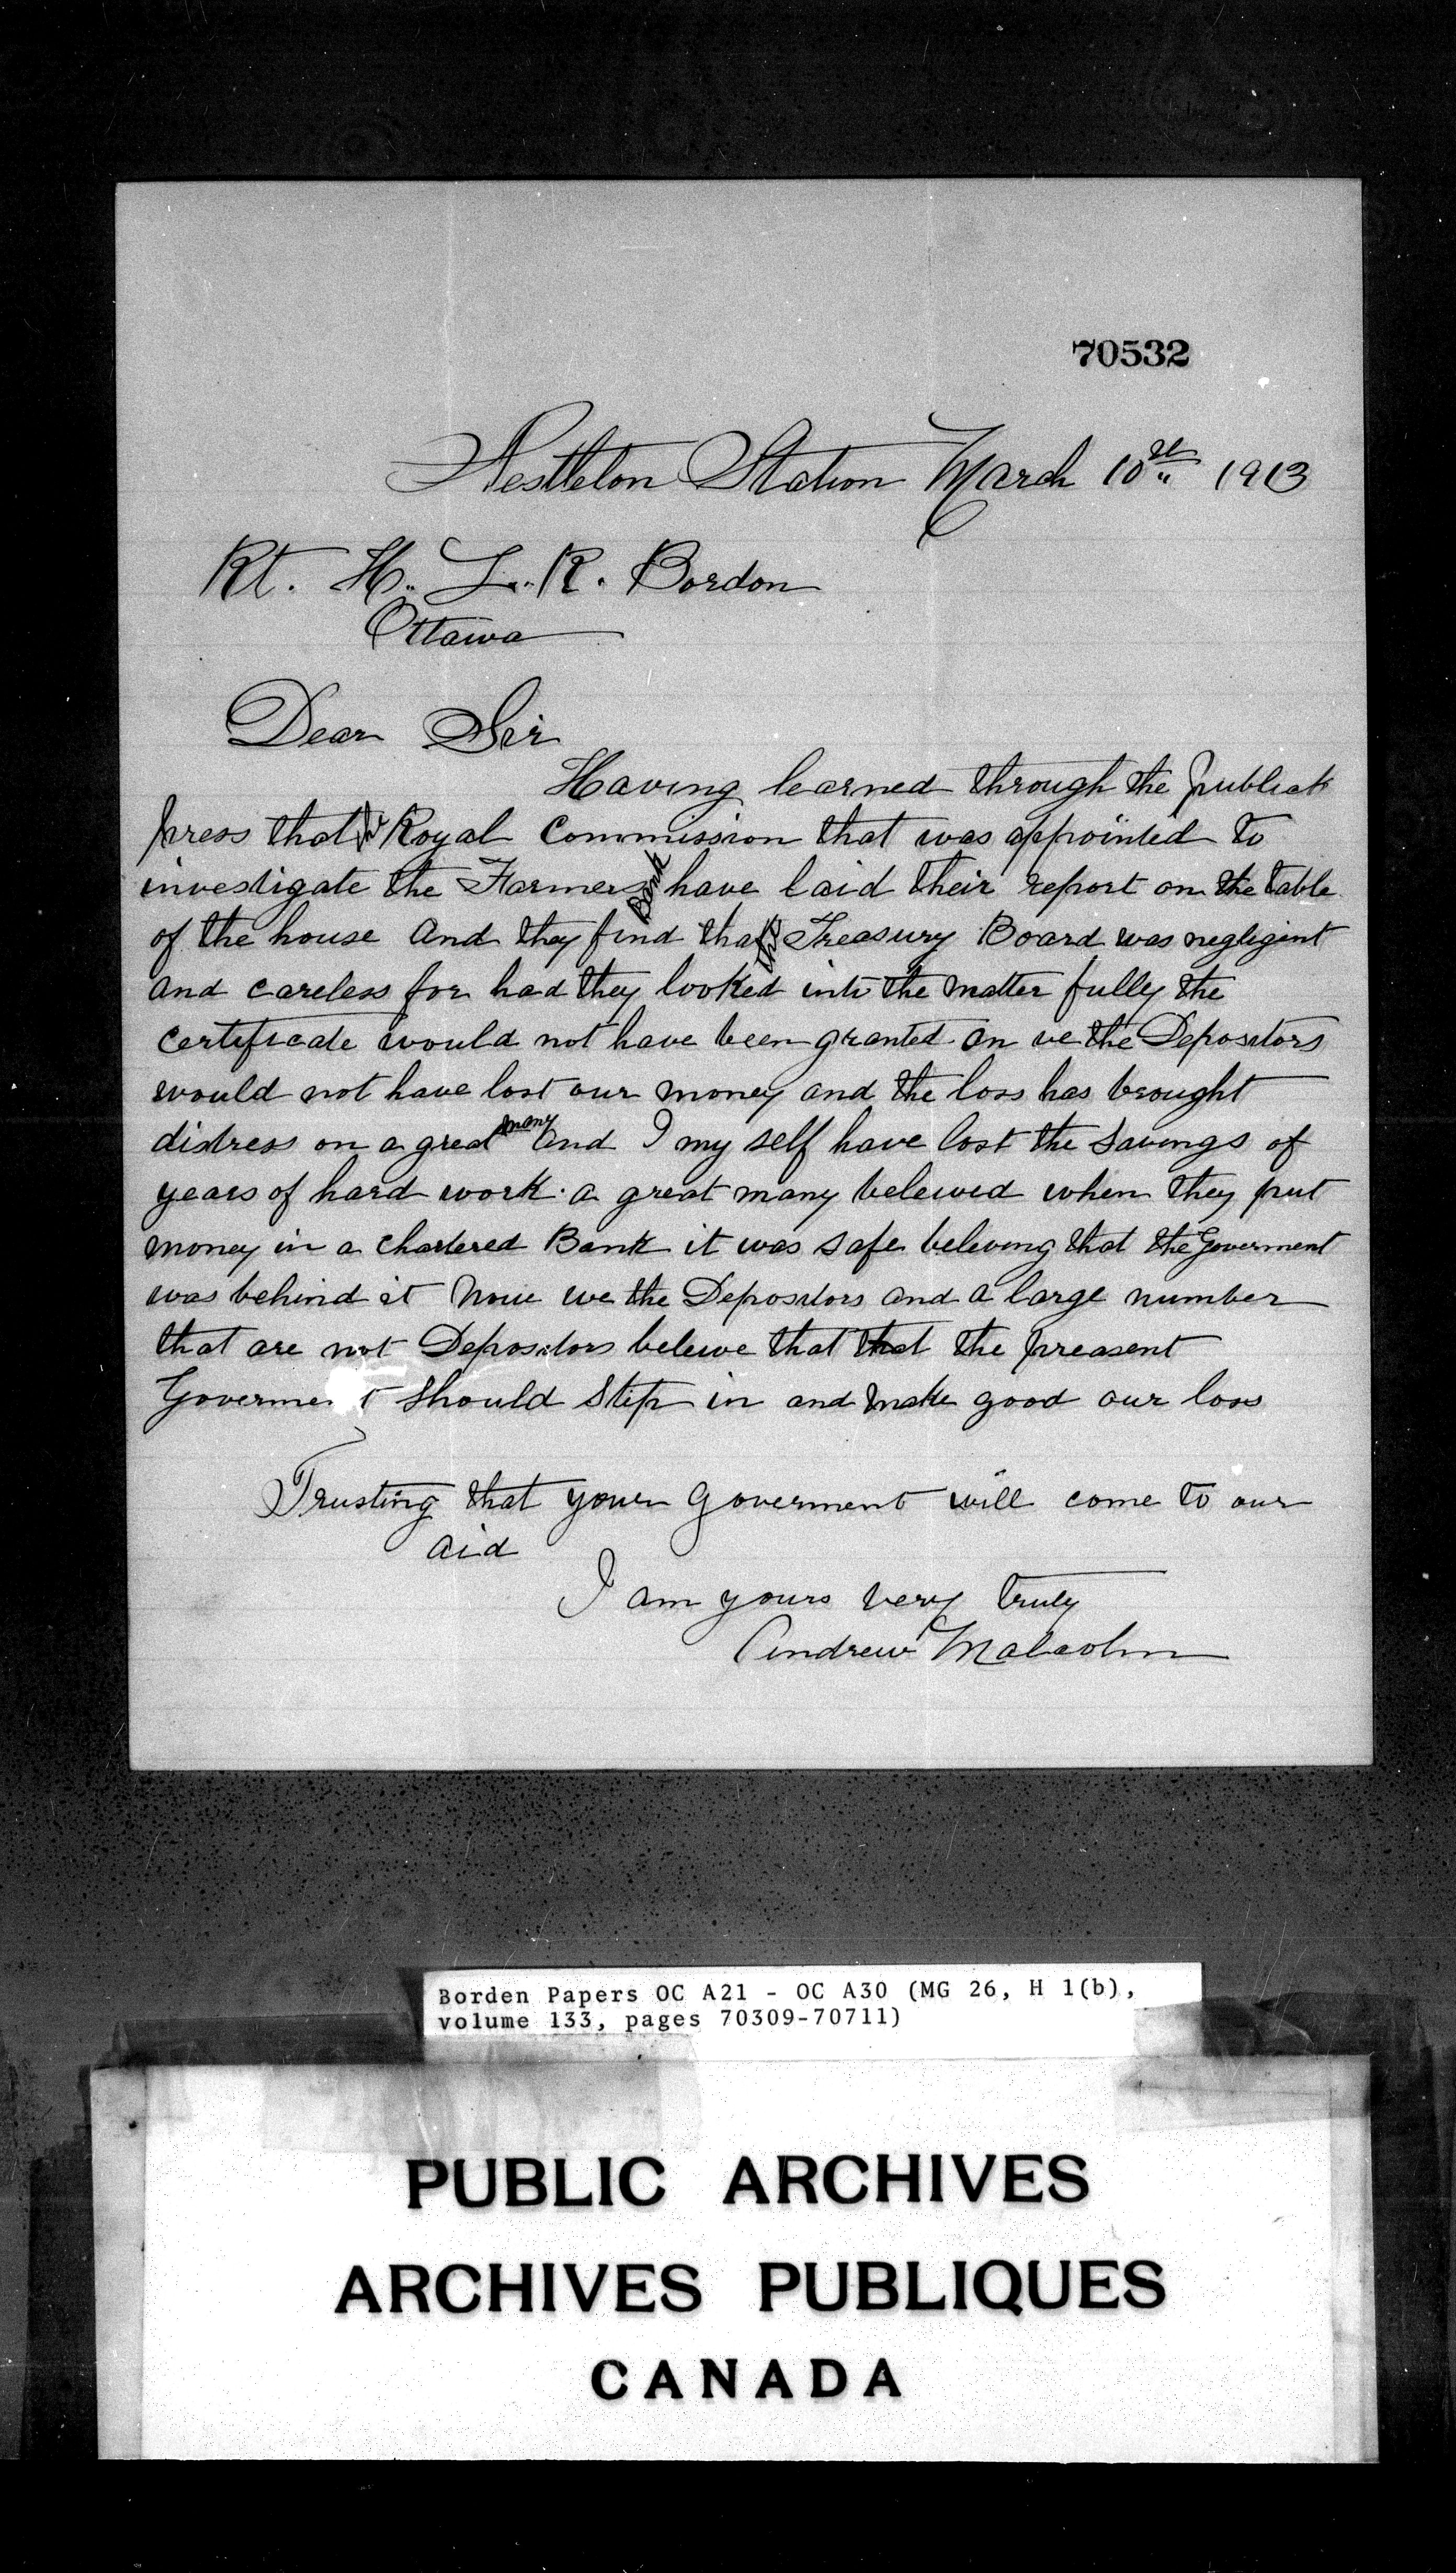 70532
Nestleton Station March 10th 1913
Rt. H. L. R. Bordon
Ottawa
Dear Sir
Having learned through the publick
press that Royal Commission that was appointed to
investigate the Farmers Bank have laid their report on the table
of the house and they find that the Treasury Board was negligint
and careless for had they looked into the matter fully the
certificate would not have been granted an we the Depositors
would not have lost our money and the loss has brought
distress on a great many and I my self have lost the savings of
years of hard work. a great many beleived when they put
money in a chartered Bank it was safe beleving that the Goverment
was behind it Now we the Depositors and a large number
that are not Depositors beleive that that the preasent
Goverment should step in and make good our loss
Trusting that your Goverment will come to our
aid
I am yours very truly
Andrew Malcolm
Borden Papers OC A21 - OC A30 (MG 26, H 1(b),
volume 133, pages 70309-70711)
PUBLIC ARCHIVES
ARCHIVES PUBLIQUES
CANADA